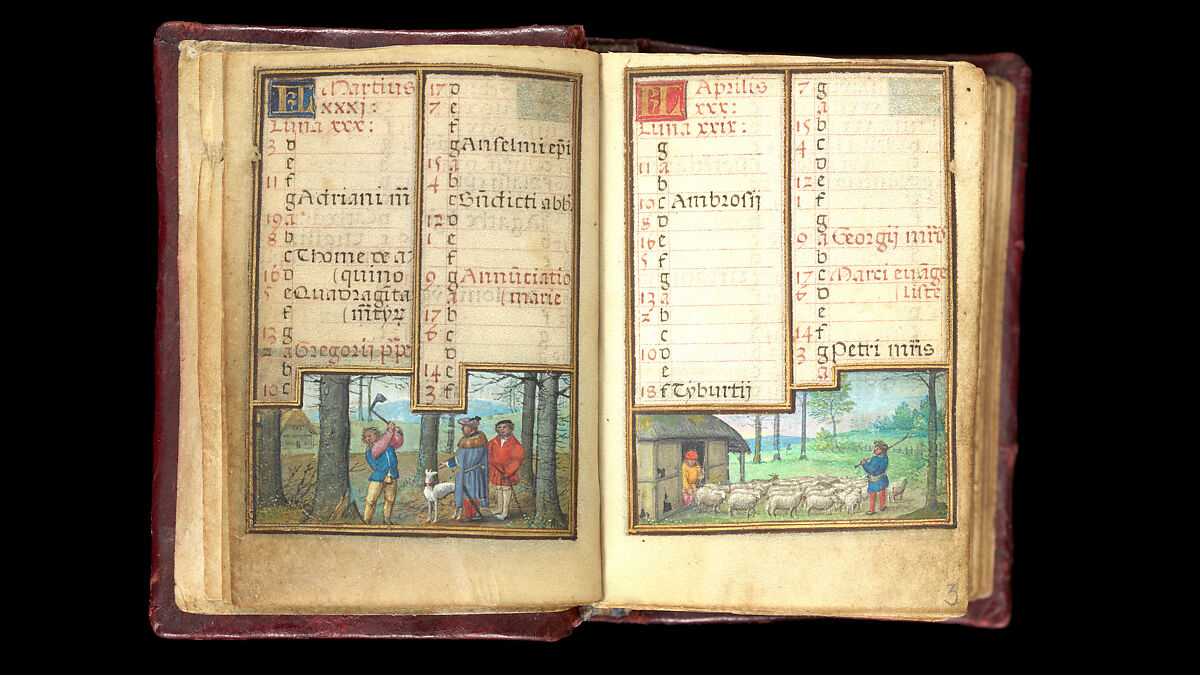 KL Martius
xxxj:
Luna xxx:
3 d
e
11 f
g Adriani m̄
19 a
8 b
c Thome de a
16 d (quino
5 e Quadrag̅ta
f (m̅tyꝝ
13 g
2 a Gregorii p̅p̅
b
10 c
17 d
7 e
f
g Anselmi ep̄i
15 a
4 b
c Bn̄dicti abb.
12 d
1 e
f
9 g Annūciatio
a (marie
17 b
6 c
d
14 e
3 f
KL Aprilis
xxx:
Luna xxix:
g
11 a
b
19 c Ambrosij
8 d
16 e
5 f
g
13 a
2 b
c
10 d
e
18 f Tyburtij
7 g
a
15 b
4 c
d
12 e
1 f
g
9 a Georgij
b
17 c Marci euāge
6 d (liste
e
14 f
3 g Petri mr̄is
a
3